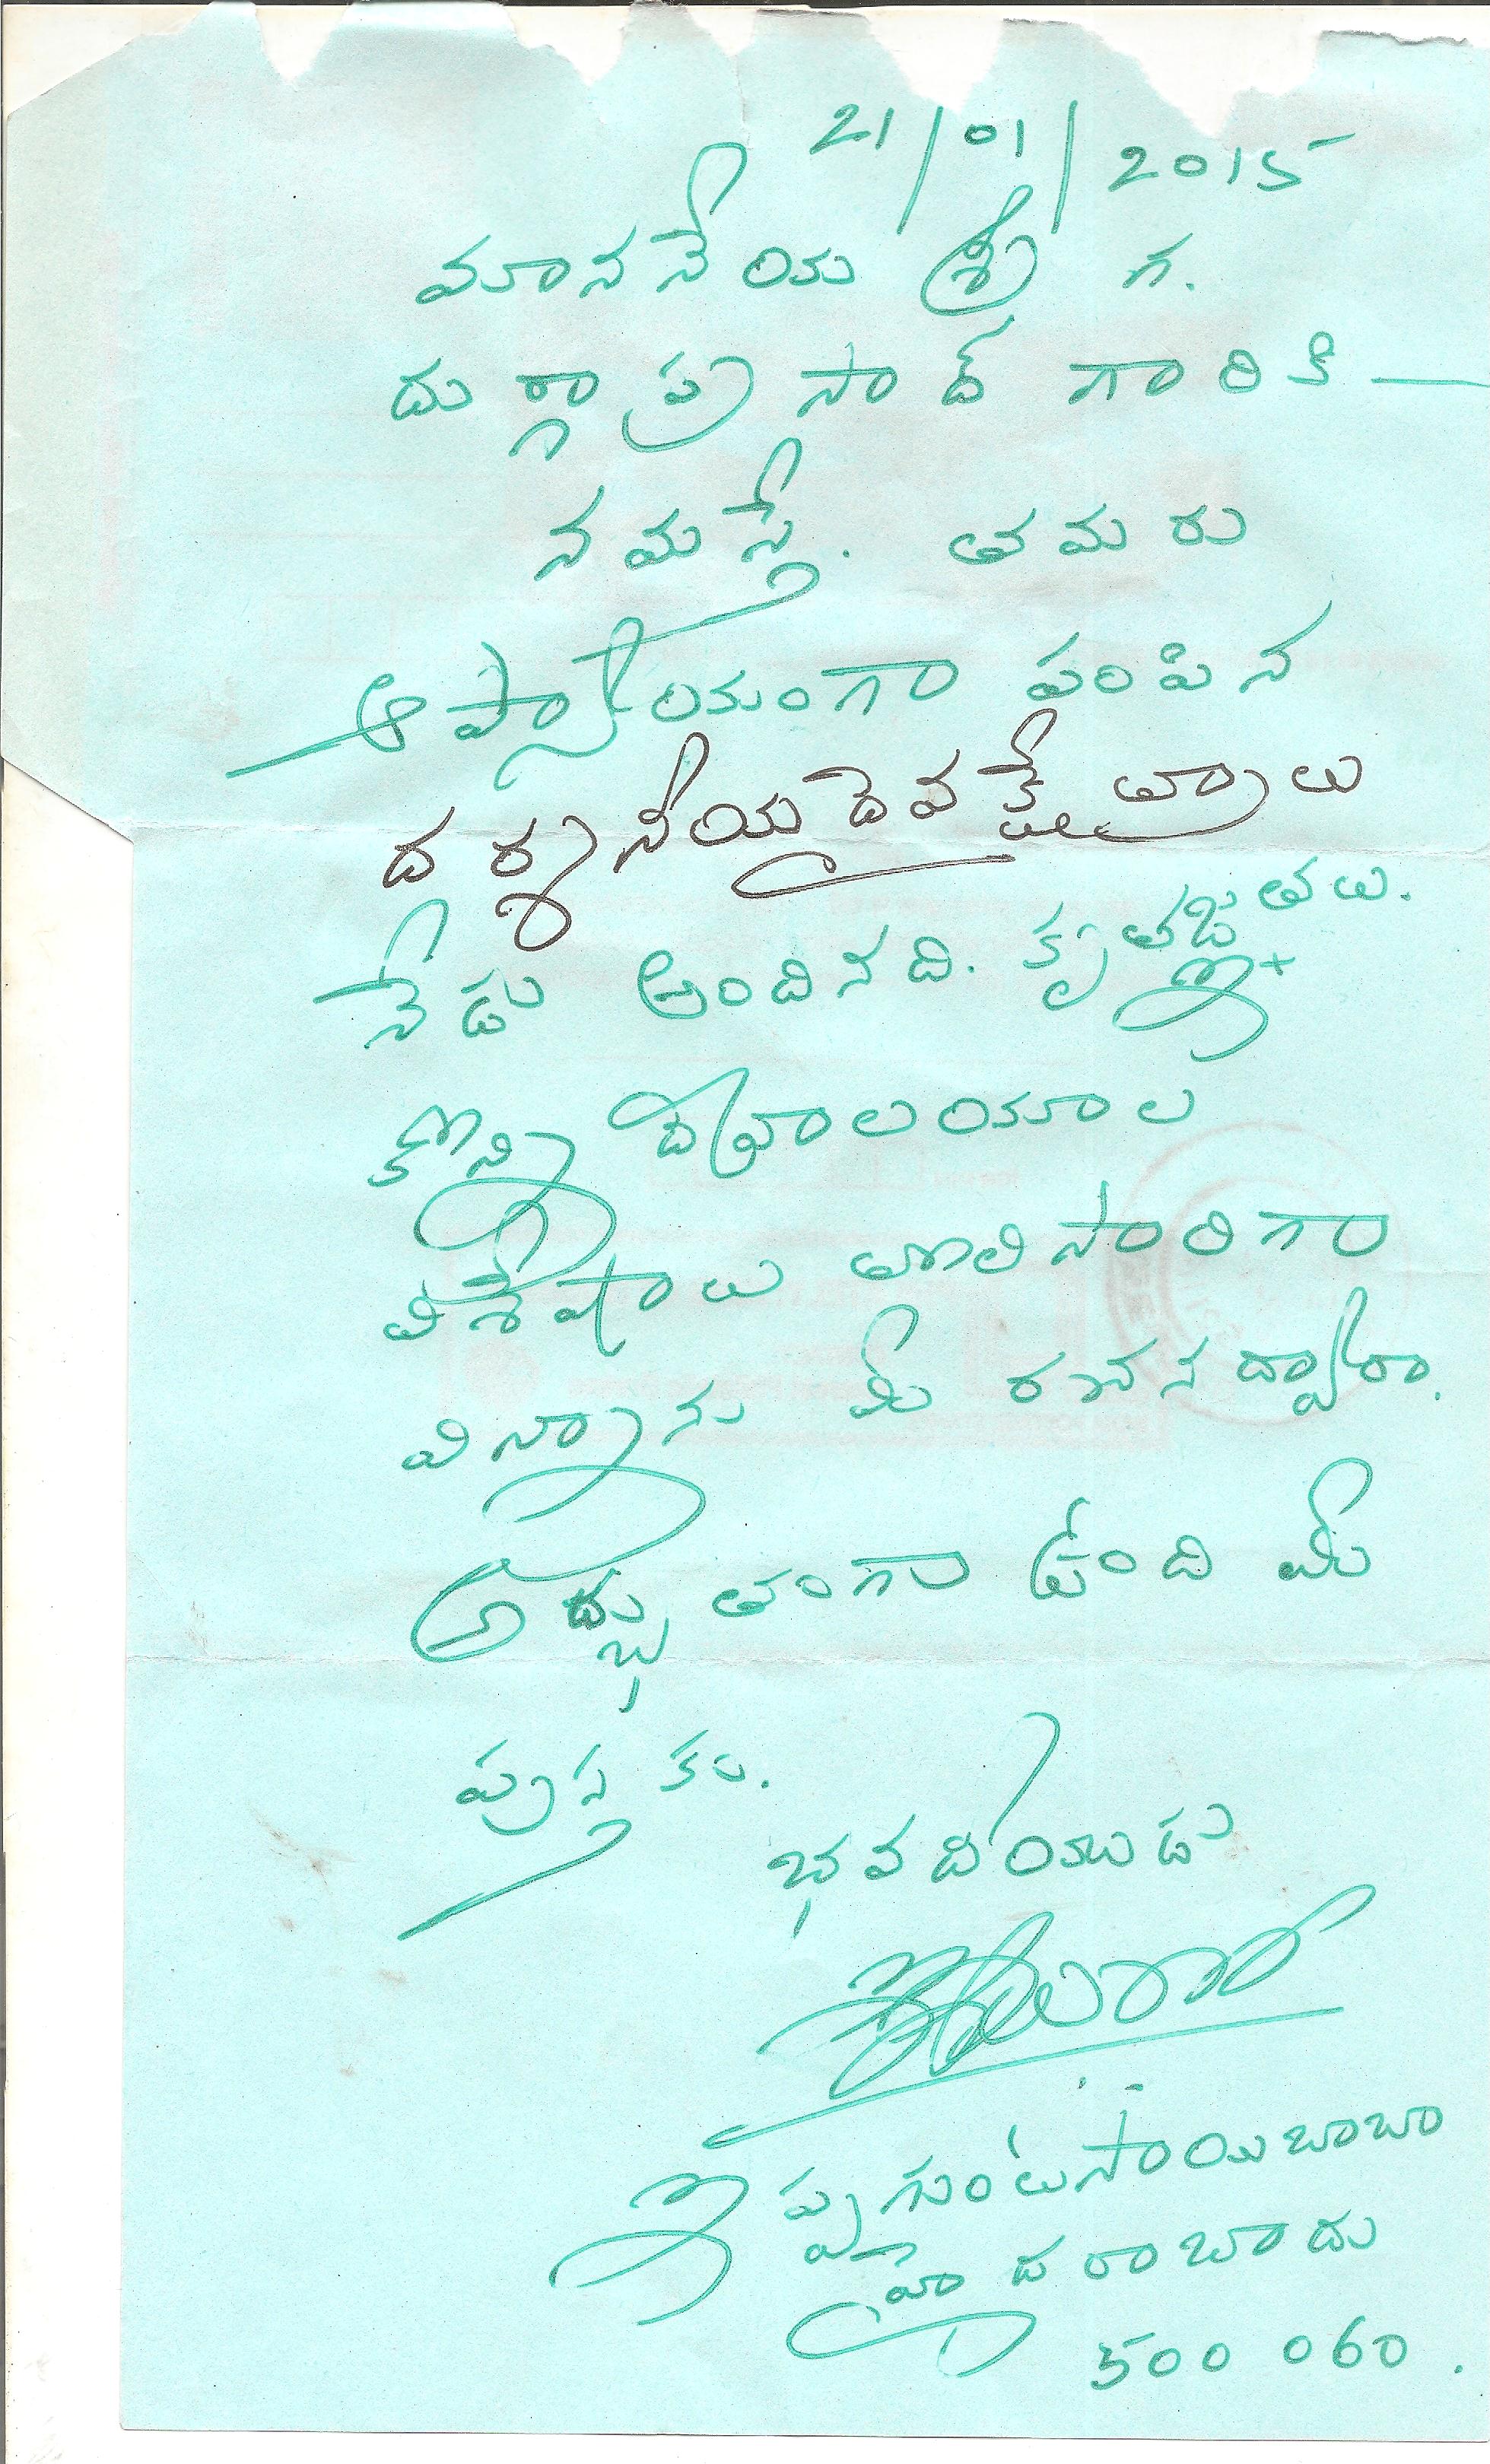 21/01/2015
మాననీయ శ్రీ గ.
దుర్గా ప్రసాద్ గారికి —
నమస్తే. తమరు
ఆప్యాయంగా పంపిన
దర్శనీయ దేవ క్షేత్రాలు
నేడు అందినది. కృతజ్ఞతలు.
కొన్ని దేవాలయాల
విశేషాలు తొలిసారిగా
విన్నాను మీ రచన ద్వారా.
అద్భుతంగా ఉంది మీ
పుస్తకం.
భవదీయుడు
కొప్పుగుంటుసాయిబాబా
హైదరాబాదు
500 060.